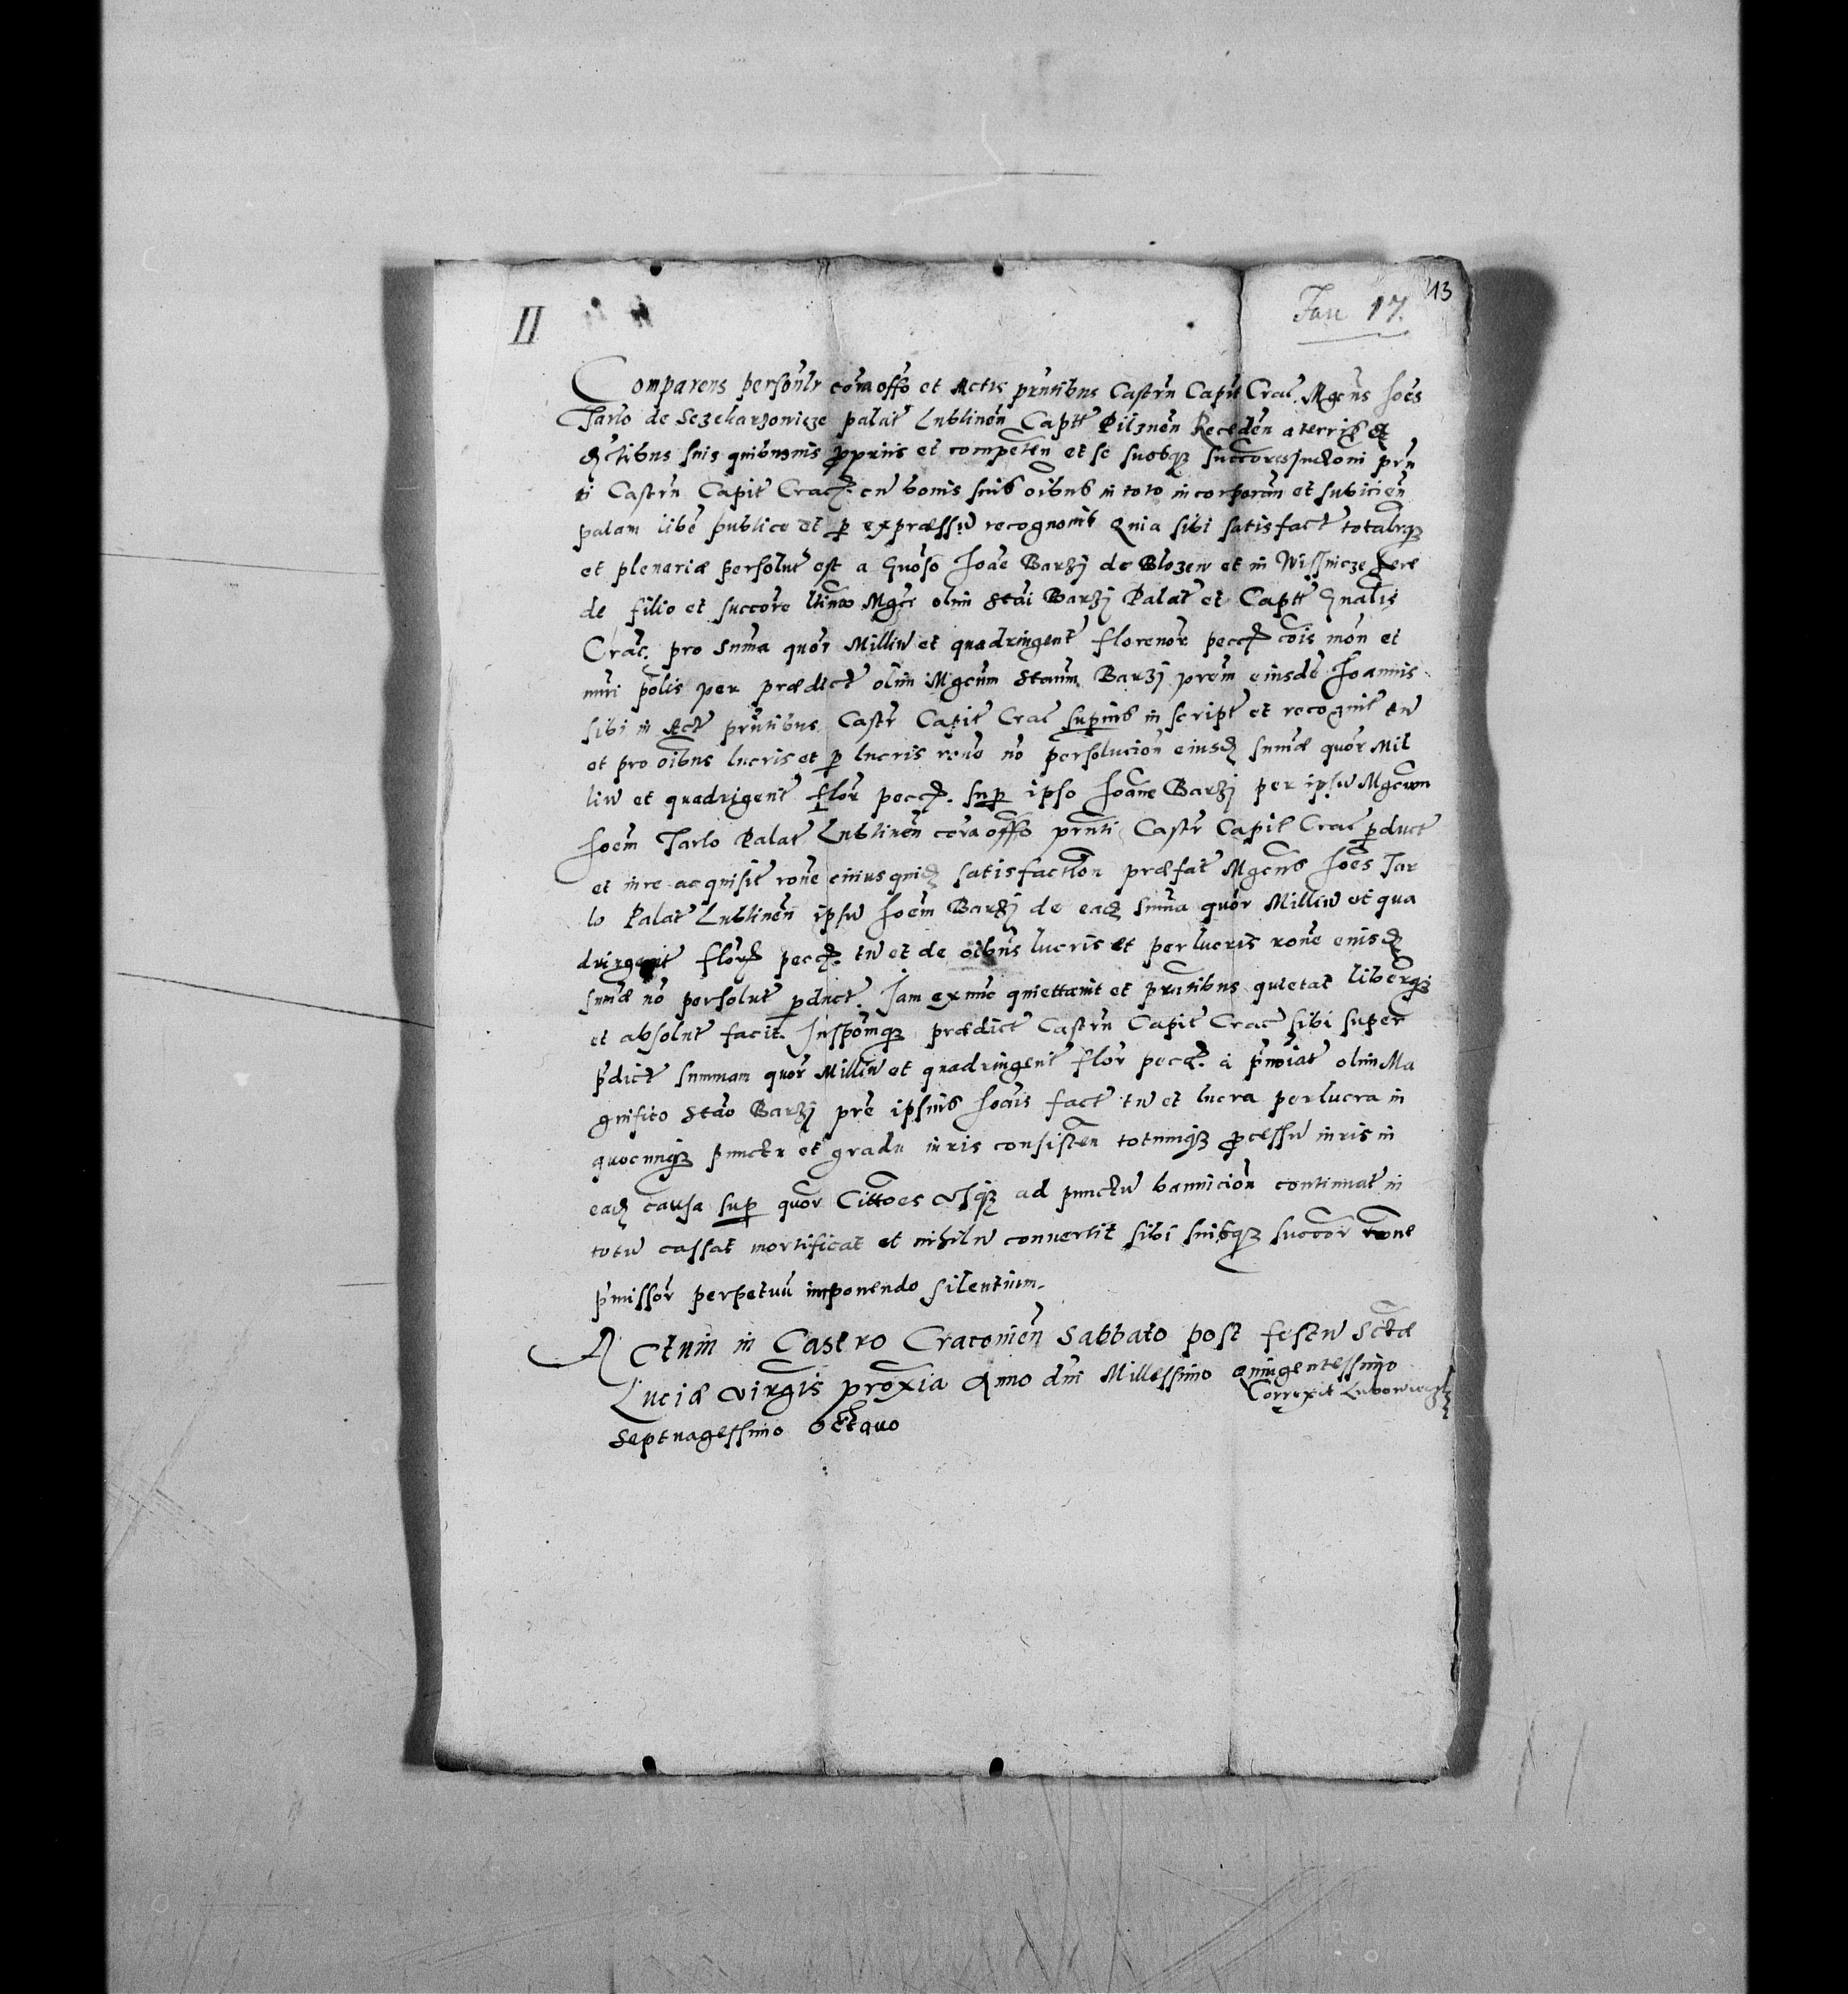 II
Jan 17.
13
Comparens personlr cora offo et Actis prntibus Castrn Capit Crac. Mgcus Joes
Tarlo de Sczekarzowicze palat Lublinen Captt Pilznen Receden a terris et
dctibus suis quibusuis propriis et competen et se suosq succores juctioni prn
ti Castrn Capit Crac. cu bonis suis oibus in toto incorporan et subicien
palam libe publice et p expraessu recognouit Quia sibi satisfact totalrq
et plenariae persolut est a Gnoso Joae Barzÿ de Blozew et in Wissnicze here
de filio et succore ltimo Mgci olim Stai Barzÿ Palat et Captt Gnalis
Crac. pro suma quor Milliu et quadringent florenor pecc cois mon et
nuri polis per praedict olim Mgcum Staum Barzÿ prem eiusde Joannis
sibi in Act prntibus Castr Capit Crac superius in script et recognit tu
et pro oibus lucris et p lucris rone no persolucion eiusd sumae quor Mil
liu et quadrigent flor pecc. sup ipso Joane Barzÿ per ipsu Mgcum
Joem Tarlo Palat Lublinen cora offo prnti Castr Capit Crac pduct
et iure acquisit rone cuius quid satisfaction praefat Mgcus Joes Tar
lo Palat Lublinen ipsu Joem Barzÿ de ead suma quor Milliu et qua
dringent flor pecc. tu et de oibus lucris et perlucris rone eiusd
sumae no persolut pduct. Jam ex nuc quiettauit et prntibus quietat liberq
et absolut facit. Inspomq praedict Castrn Capit Crac sibi super
pdict summam quor Milliu et quadringent flor pecc. a pnoiat olim Ma
gnifico Stao Barzÿ pre ipsius Joais fact tu et lucra perlucra in
quocunq punctu et gradu iuris consisten totumq processu iuris in
ead causa sup quor Cittoes Usq ad punctu bannicion continuat in
totu cassat mortificat et nihilu conuertit sibi suisq succor rone
pmissor perpetuu imponendo silentium.
Actum in Castro Cracouien Sabbato post festu Sctae
Luciae Virgis proxia Anno dni Millessimo Quingentessimo
Septuagessimo Octauo
Correxit